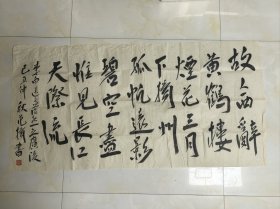 故人西辭
黄鶴樓
煙花三月
下揚州
孤帆遠影
碧空盡
惟見長江
天際流
李白送孟浩然之廣陵
己丑仲秋 書